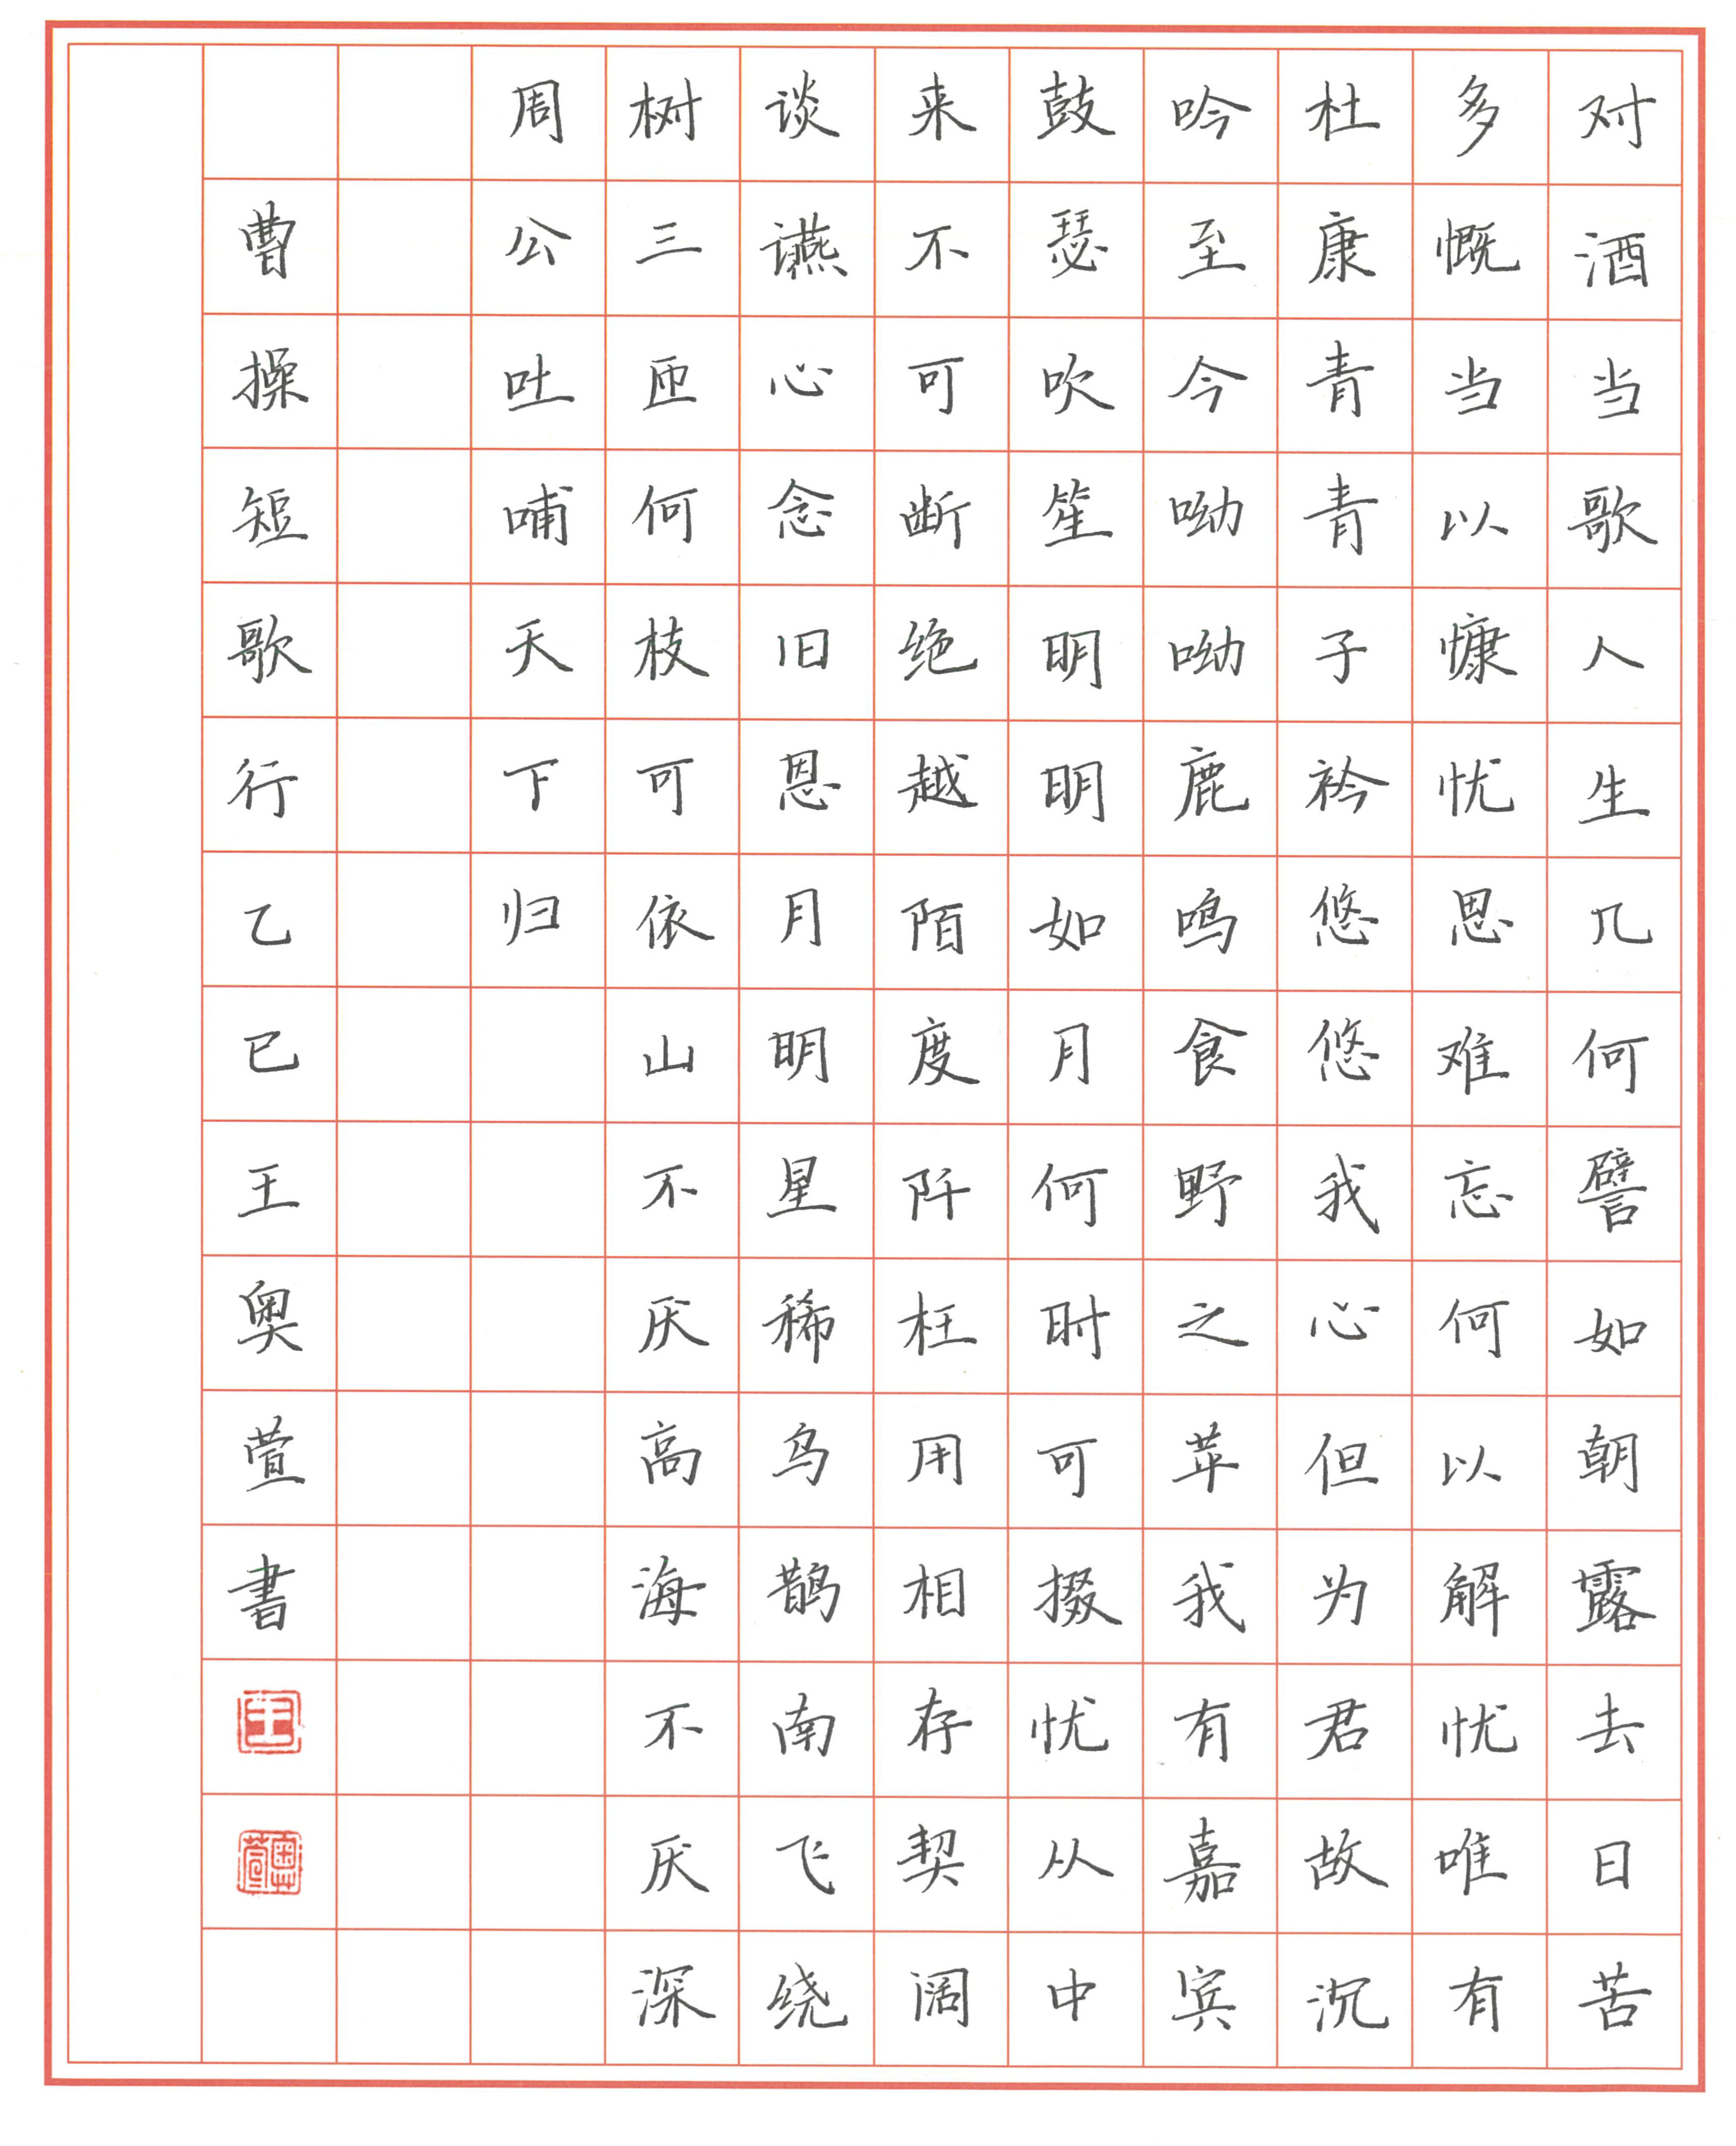 对酒当歌人生几何譬如朝露去日苦
多慨当以慷忧思难忘何以解忧唯有
杜康青青子衿悠悠我心但为君故沉
吟至今呦呦鹿鸣食野之苹我有嘉宾
鼓瑟吹笙明明如月何时可掇忧从中
来不可断绝越陌度阡枉用相存契阔
谈讌心念旧恩月明星稀乌鹊南飞绕
树三匝何枝可依山不厌高海不厌深
周公吐哺天下归
曹操短歌行乙巳王奥萱書
王
奥萱